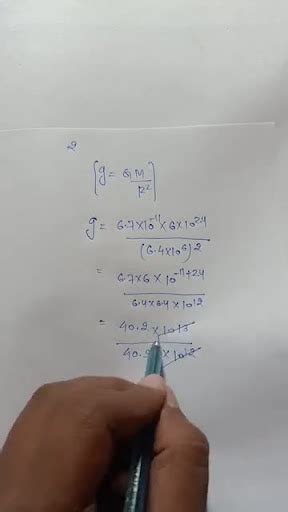 2
[g = GM / R²]
g = 6.7×10⁻¹¹×6×10²⁴ / (6.4×10⁶)²
= 6.7×6×10⁻¹¹⁺²⁴ / 6.4×6.4×10¹²
= 40.2×10¹³ / 40.9×10¹²